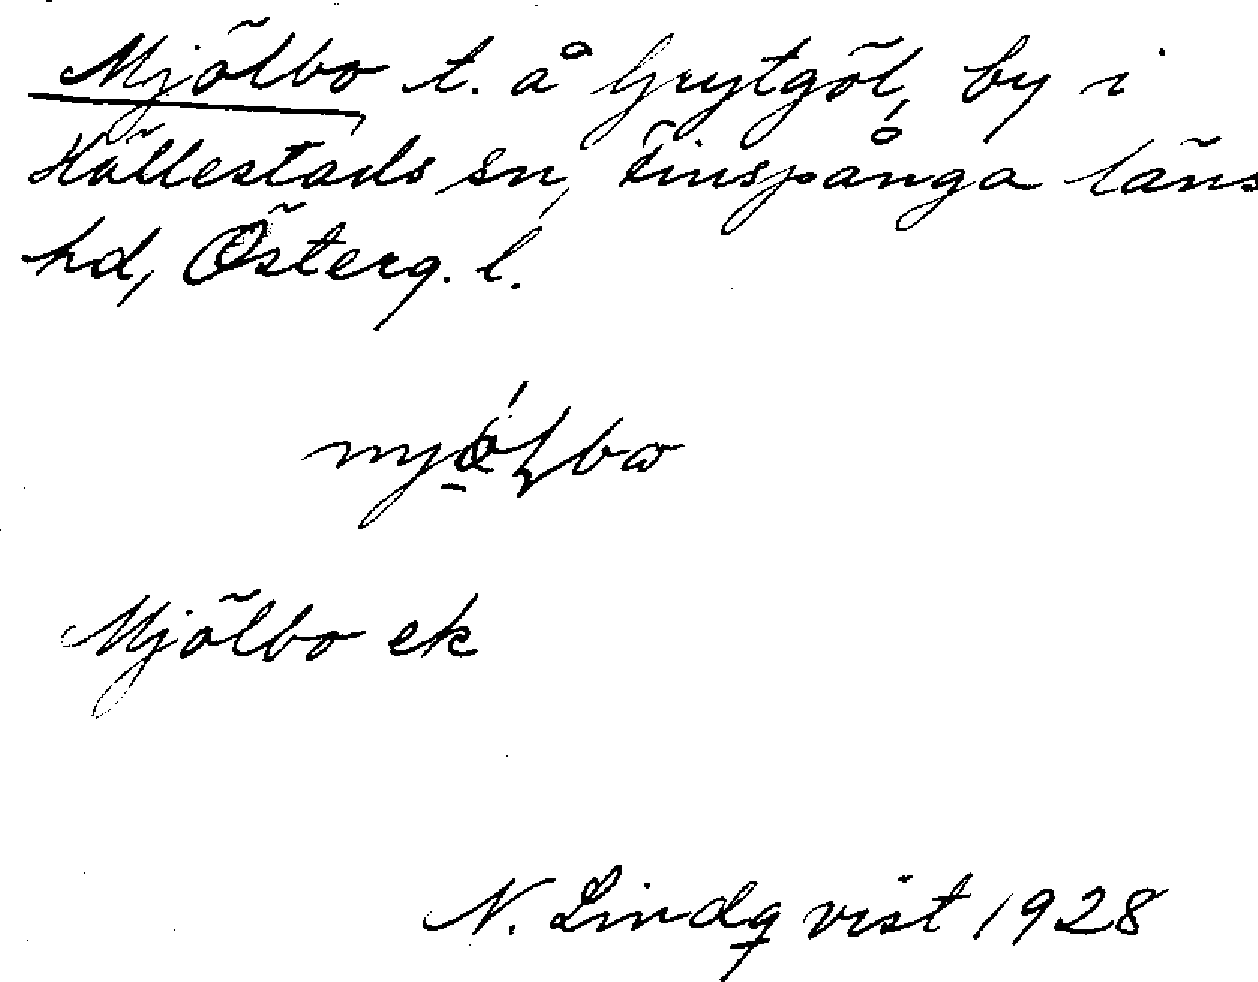 Mjölbo t. å Grytgöl, by i
Hällestads sn, Finspånga läns
hd, Österg. l.
Mjölbo ek
N. Lindqvist 1928